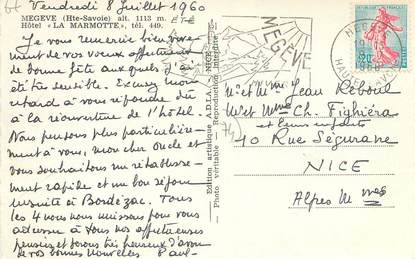 Vendredi 8 Juillet 1960
MEGEVE (Hte-Savoie) alt. 1113 m. ÉTÉ
Hôtel "LA MARMOTTE", tél. 449.
Je vous remercie bien vive-
ment de vos vœux affectueux
de bonne fête aux quels j'ai
été très sensible. Excusez mon
retard à vous répondre dû
à la réouverture de l'hôtel.
Nous pensons plus particulière-
ment à vous, mon cher oncle et
vous souhaitons un rétablisse-
ment rapide et un bon séjour
ensuite à Bordézac. Tous
les 4 nous nous unissons pour vous
adresser à tous nos affectueuses
pensées et serons très heureux d'avoir
de vos bonnes nouvelles Paul-
Edition artistique A.D.I.A. - NICE
Photo véritable - Reproduction interdite
MEGEVE
MEGEVE
1960
HAUTE-SAVOIE
M et Mme Jean Reboul
M et Mme Ch. Fighiéra
et leurs enfants
10 Rue Ségurane
NICE
Alpes Mmes